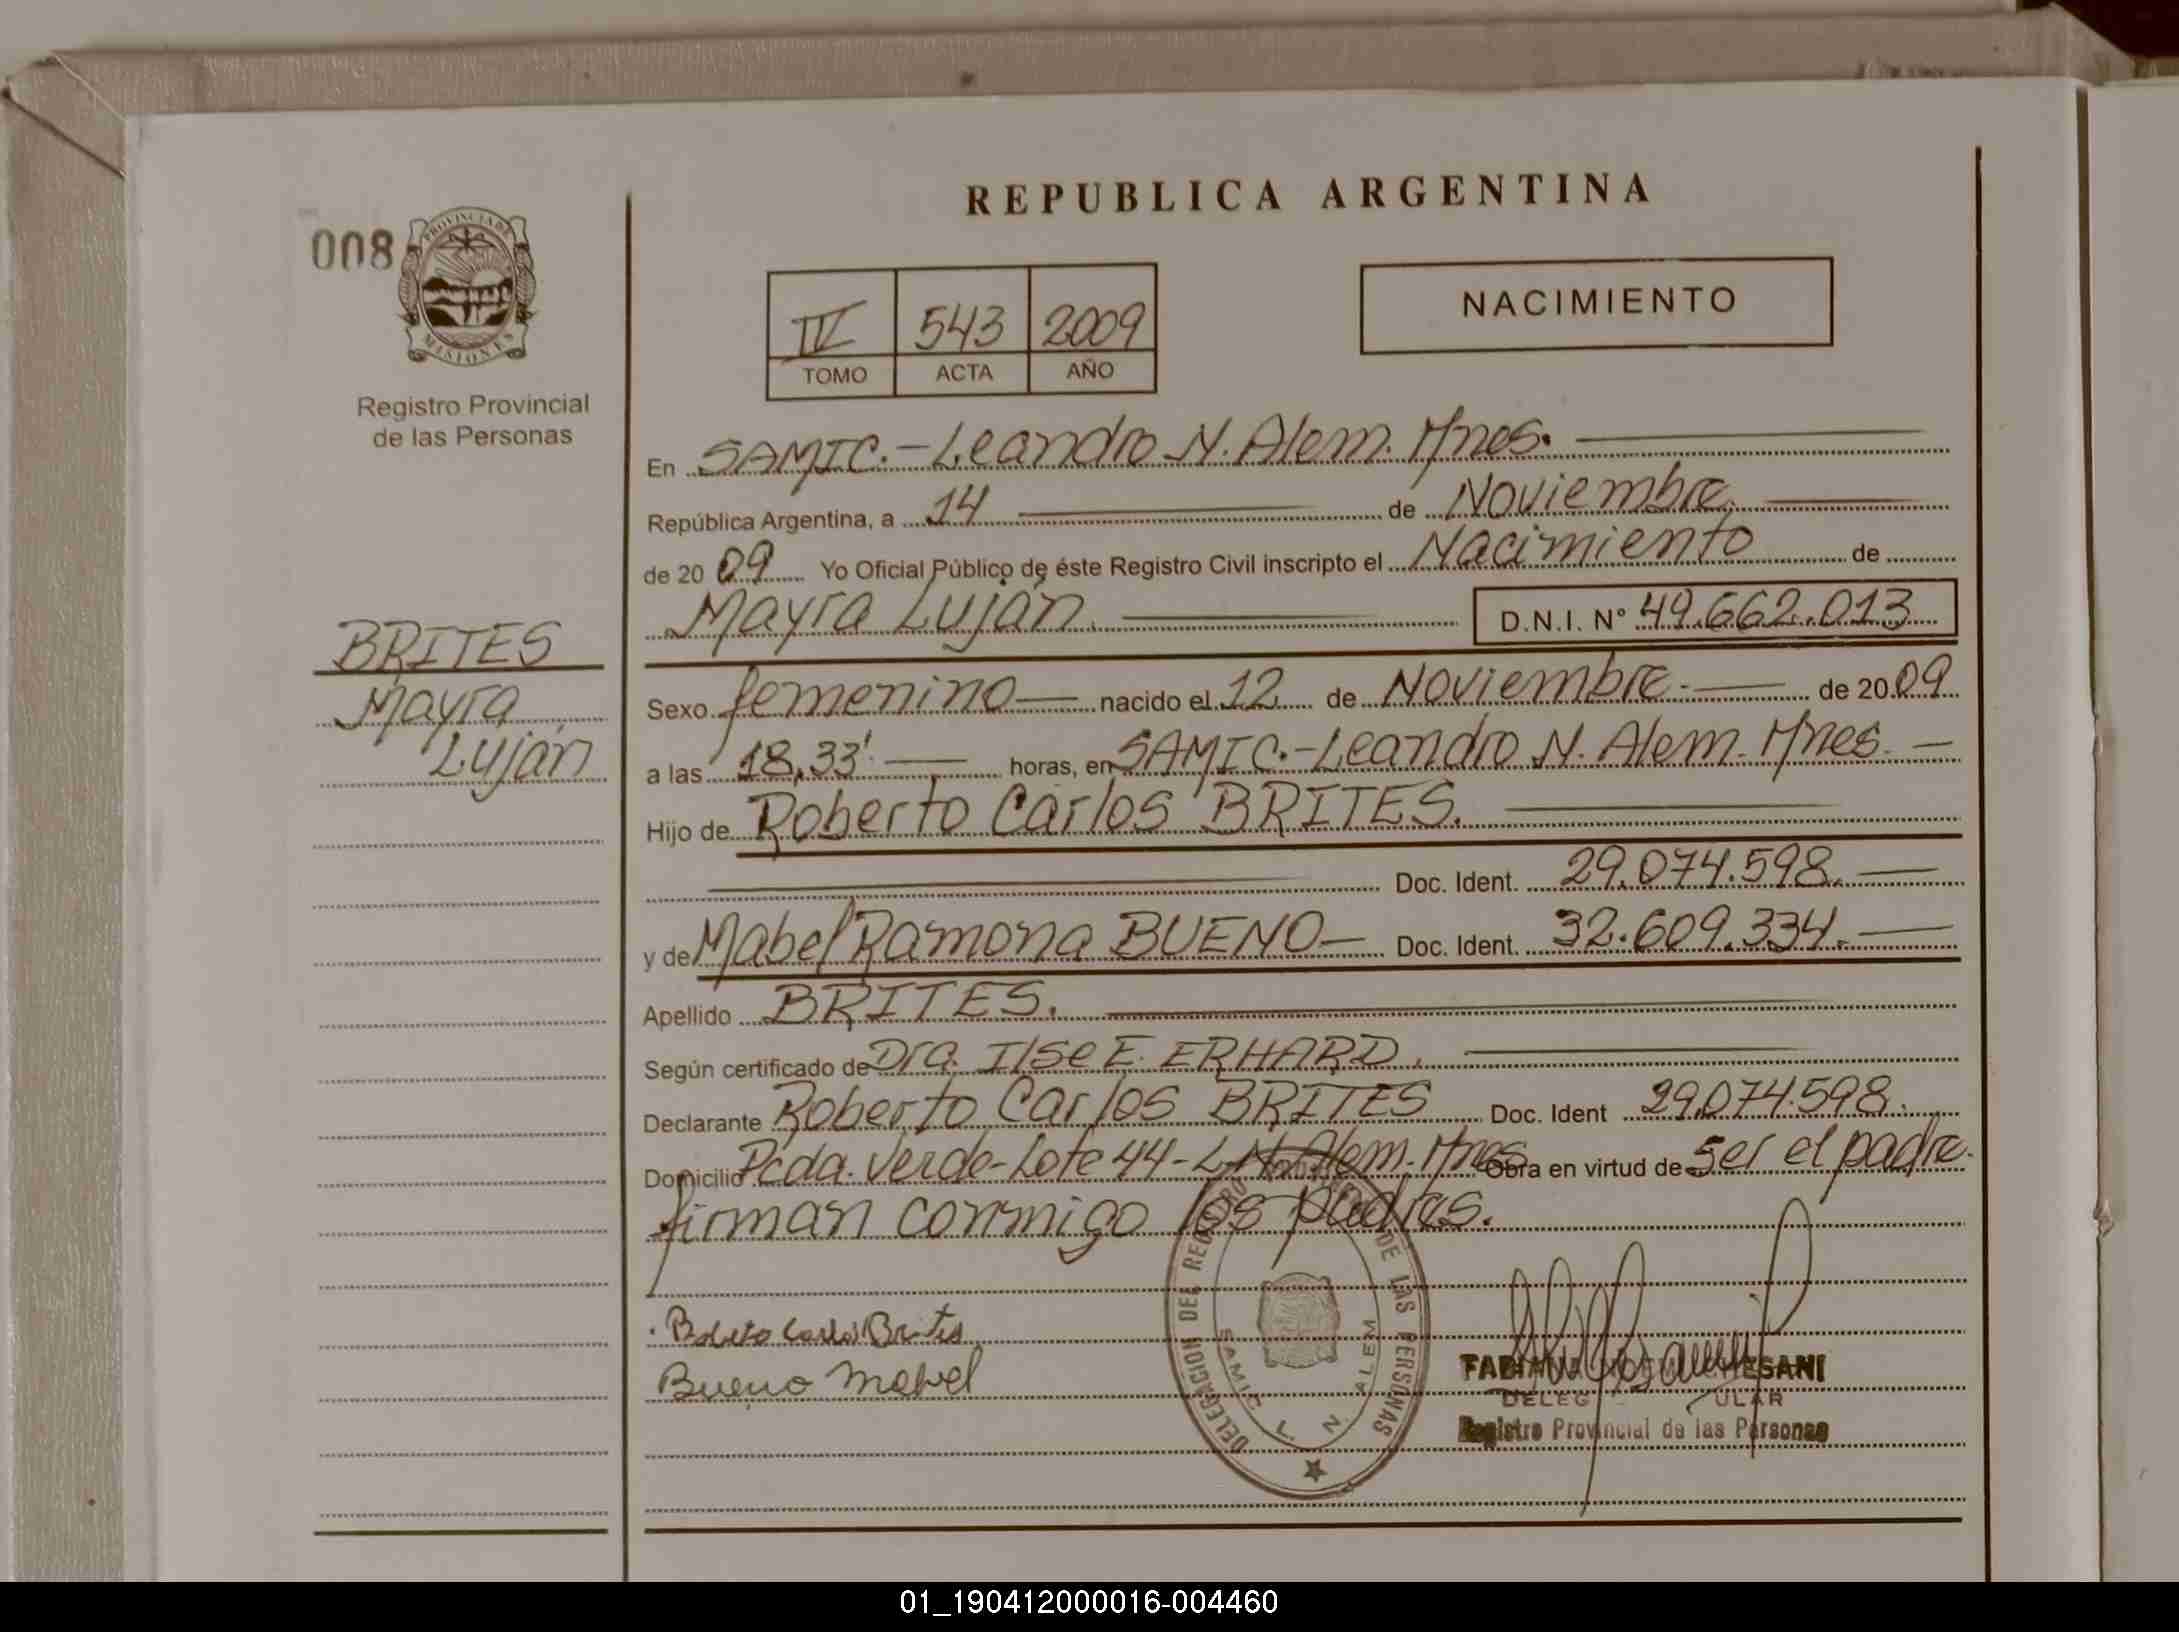 REPUBLICA ARGENTINA
008
PROVINCIA DE
MISIONES
Registro Provincial
de las Personas
IV 543 2009
TOMO ACTA AÑO
NACIMIENTO
En SAMIC.-Leandro N. Alem. Mnes.
República Argentina, a 14 de Noviembre
de 2009 Yo Oficial Público de éste Registro Civil inscripto el Nacimiento de
Mayra Luján. D.N.I. N° 49.662.013
BRITES
Mayra
Luján
Sexo femenino nacido el 12 de Noviembre.- de 2009
a las 18,33' horas, en SAMIC.-Leandro N. Alem. Mnes. -
Hijo de Roberto Carlos BRITES.
Doc. Ident. 29.074.598.
y de Mabel Ramona BUENO- Doc. Ident. 32.609.334.
Apellido BRITES.
Según certificado de Dra. Ilse E. ERHARD.
Declarante Roberto Carlos BRITES Doc. Ident 29.074.598.
Domicilio Pcda. Verde-Lote 44-L.N. Alem. Mnes Obra en virtud de ser el padre.
firman conmigo los padres.
Carlos Brites
Bueno Mabel
DELEGACION DEL REGISTRO DE LAS PERSONAS
SAMIC L. N. ALEM
Registro Provincial de las Personas
01_190412000016-004460